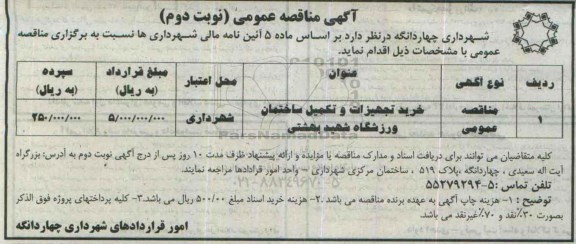 آگهی مناقصه عمومی (نوبت دوم)
شهرداری چهاردانگه درنظر دارد بر اساس ماده ۵ آئین نامه مالی شهرداری ها نسبت به برگزاری مناقصه
عمومی با مشخصات ذیل اقدام نماید.
ردیف نوع اگهی عنوان محل اعتبار مبلغ قرارداد (به ریال) سپرده (به ریال)
۱ مناقصه عمومی خرید تجهیزات و تکمیل ساختمان ورزشگاه شهید بهشتی شهرداری ۵/۰۰۰/۰۰۰/۰۰۰ ۲۵۰/۰۰۰/۰۰۰
کلیه متقاضیان می توانند برای دریافت اسناد و مدارک مناقصه یا مزایده و ارائه پیشنهاد ظرف مدت ۱۰ روز پس از درج آگهی نوبت دوم به آدرس: بزرگراه
آیت اله سعیدی ، چهاردانگه ،پلاک ۵۱۹ ، ساختمان مرکزی شهرداری – واحد امور قراردادها مراجعه نمایند.
تلفن تماس :۵-۵۵۲۷۹۲۹۴
توضیح : ۱- هزینه چاپ آگهی به عهده برنده مناقصه می باشد .۲- هزینه خرید اسناد مبلغ ۵۰۰/۰۰۰ ریال می باشد.۳- کلیه پرداختهای پروژه فوق الذکر
بصورت ۳۰٪نقد و ۷۰٪غیرنقد می باشد.
امور قراردادهای شهرداری چهاردانگه